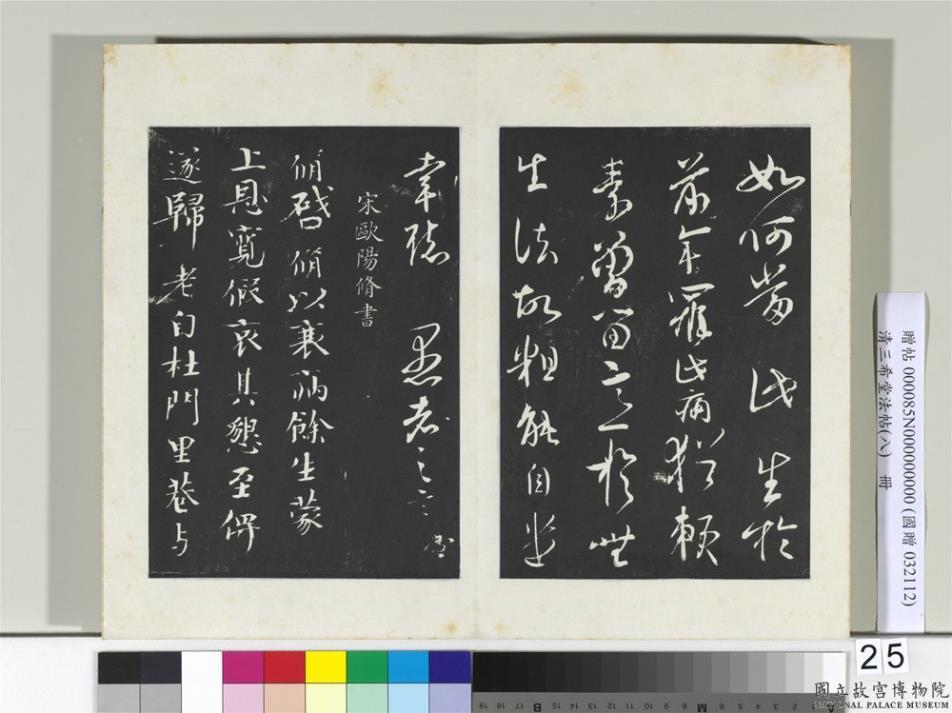 如何當此生於
前年罹此病猶賴
素嘗留意於世
生法故粗能自
幸聽愚老之言
宋歐陽脩書
脩啓脩以衰病餘生蒙
上恩寬假哀其懇至俾
遂歸老自杜門里巷与
贈帖 000085N000000000 (國贈 032112)
清三希堂法帖(八) 冊
25
國立故宮博物院
NATIONAL PALACE MUSEUM